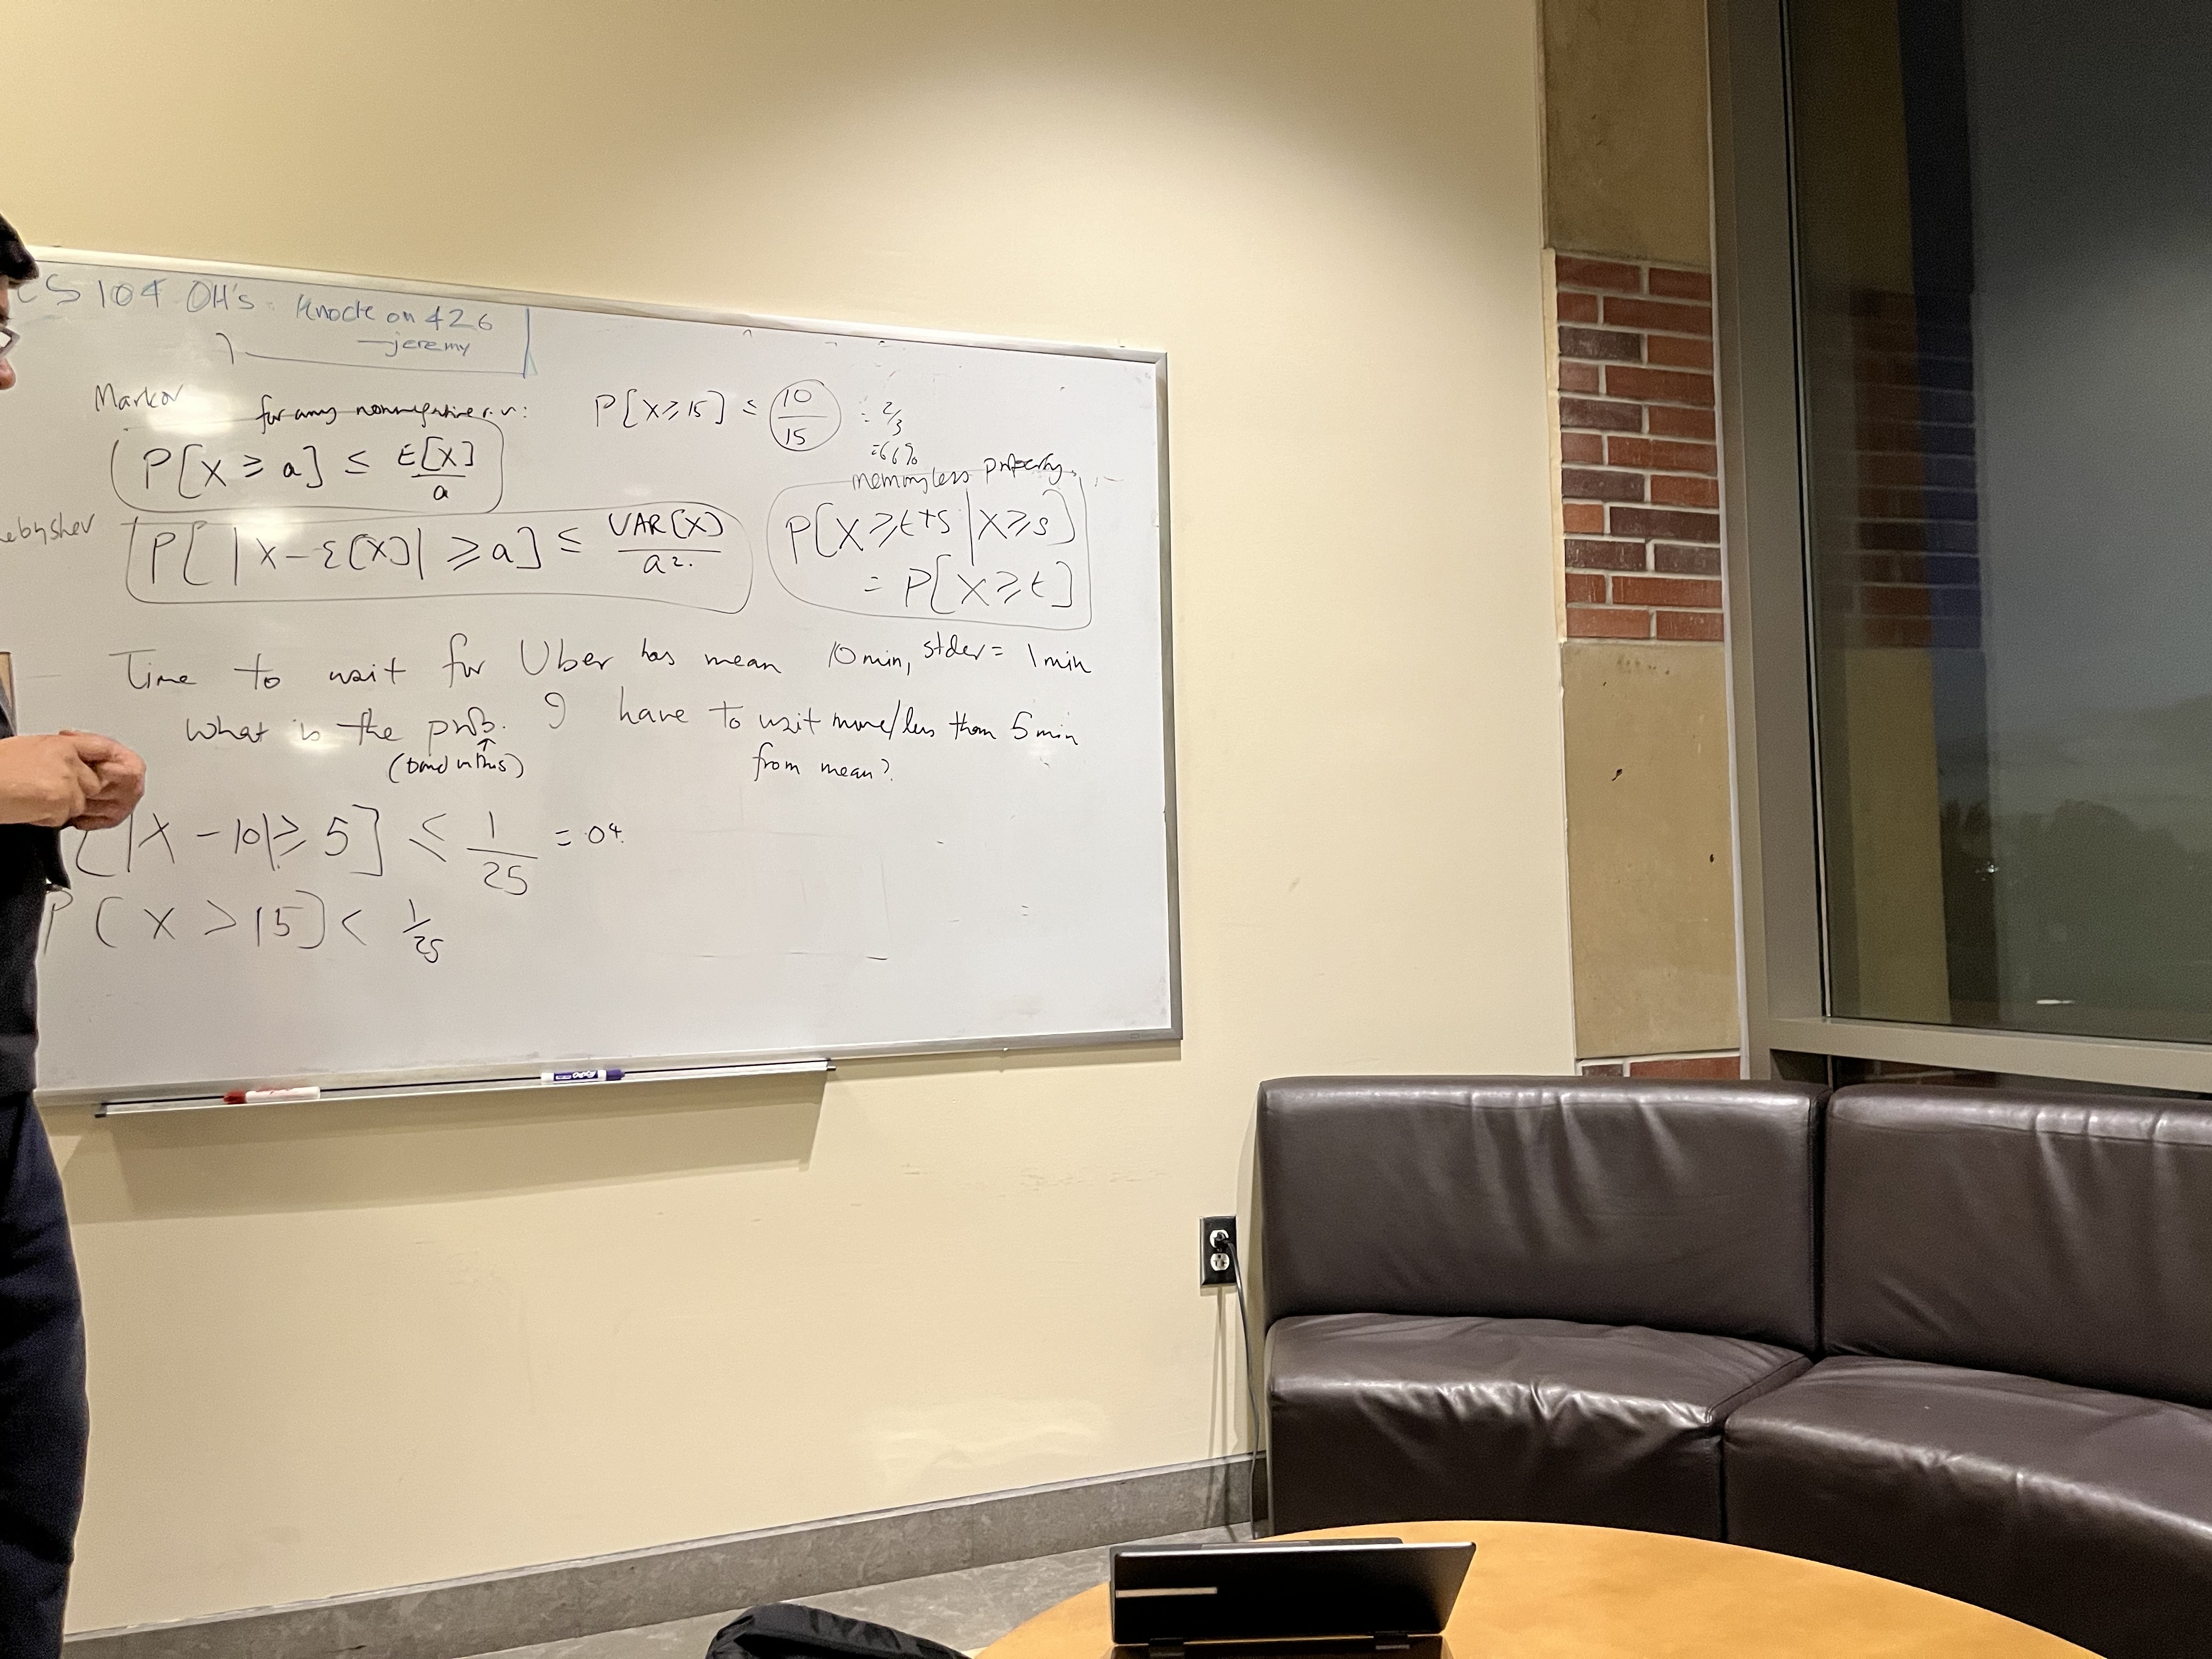 CS 104 OH's: Knock on 426
—jeremy
Markov
for any nonnegative r.v:
P[X ≥ a] ≤ E[X]/a
P[X ≥ 15] ≤ 10/15 = 2/3
=66%
ebyshev
P[|X-E[X]| ≥ a] ≤ VAR(X)/a².
memoryless property
P[X ≥ t+s | X ≥ s]
= P[X ≥ t]
Time to wait for Uber has mean 10 min, stdev = 1 min
What is the prob. I have to wait more/less than 5 min
(bound on this)
from mean?
[|X - 10| ≥ 5] ≤ 1/25 = .04.
P(X > 15] < 1/25